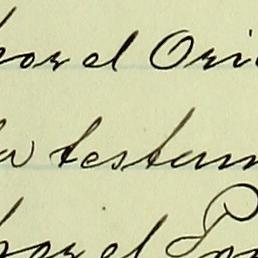 por el Ori
la testam
por el Po